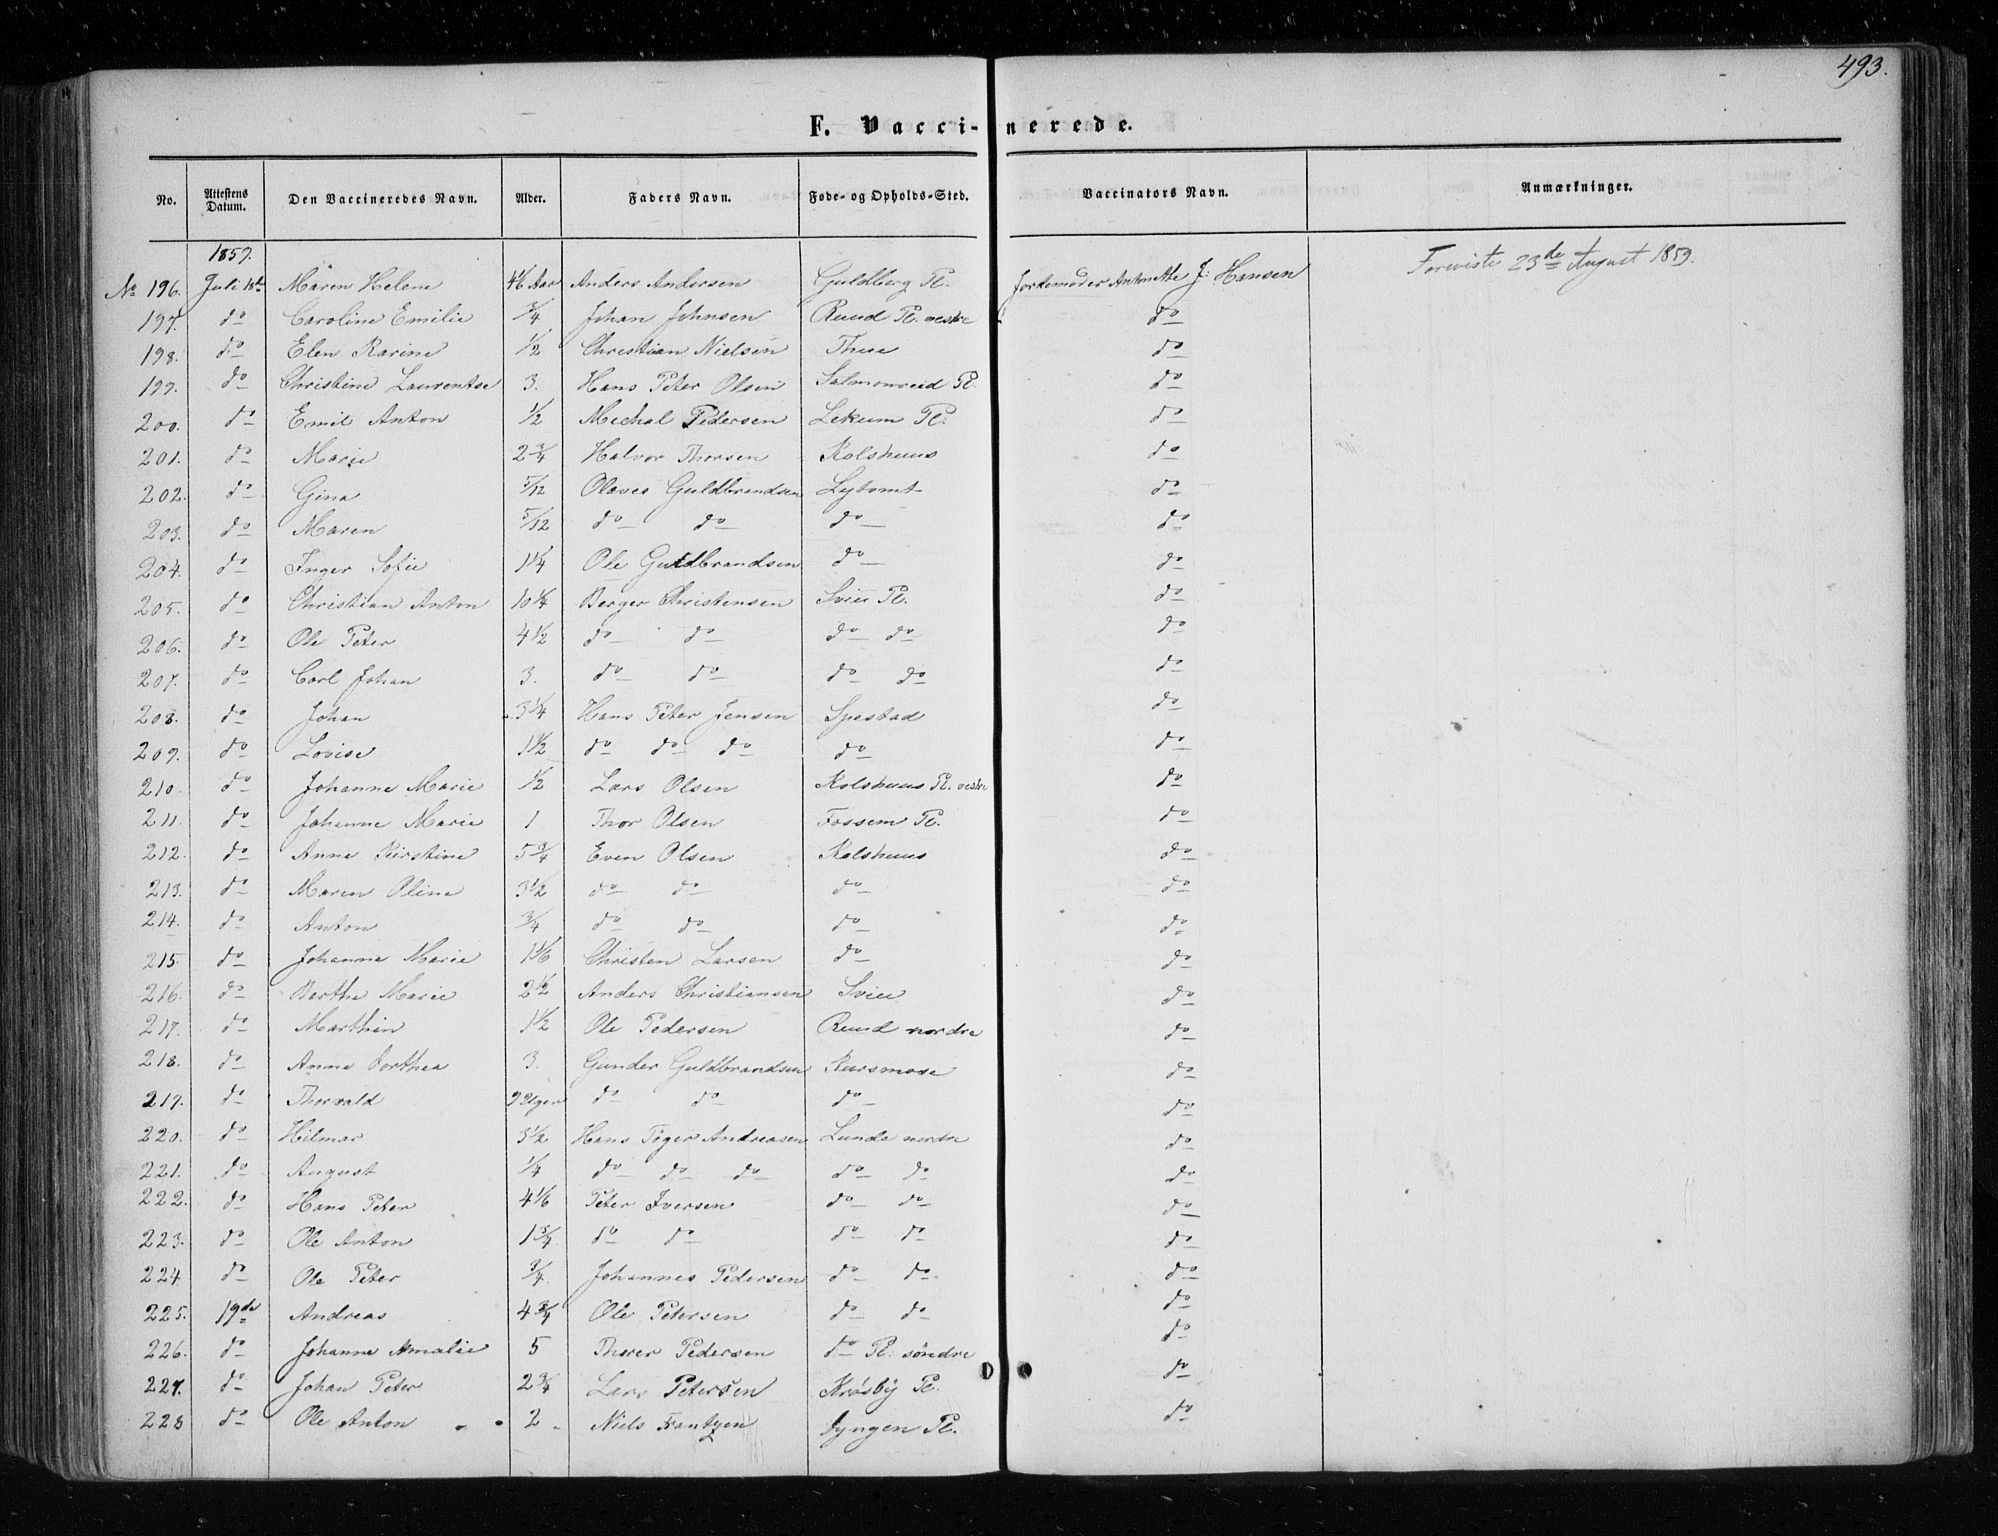 493.
F. Vaccinerede.
No. Attestens Datum. Den Vaccineredes Navn. Alder. Faders Navn. Føde- og Opholds-Sted. Vaccinators Navn. Anmærkninger.
1859. Foreviste 23de August 1859.
No 196. Juli 18de Maren Helene Aar Anders Andersen Guldberg Pl. Jordemoder J: Hansen
197. do Caroline Emilie 3/4 Johan Johnsen Ruud Pl. vestre do
198. do Elen Karine 1/2 Christian Nielsen do
199. do Christine Laurentse 3. Hans Peter Olsen Pl. do
200. do Emil Anton 1/2 Michal Pedersen Lekum Pl. do
201. do Marie 2 3/4 Halvor Thorsen Kolshuus do
202. do Gina 5/12 Olaves Guldbrandsen Lytomt do
203. do Maren 5/12 do do do do
204. do Inger Sofie 1 1/4 Ole Guldbrandsen do do
205. do Christian Anton 10 1/4 Berger Christensen Pl. do
206. do Ole Peter 4 1/2 do do do do do
207. do Carl Johan 3. do do do do do
208. do Johan 3 1/4 Hans Peter Jensen Spestad do
209. do Lovise 1 1/2 do do do do do
210. do Johanne Marie 1/2 Lars Olsen Kolshuus Pl. vestre do
211. do Johanne Marie 1 Thor Olsen Fossem Pl. do
212. do Anne Kirstine 5 3/4 Even Olsen Kolshuus do
213. do Maren Oline 3 1/2 do do do do
214. do Anton 3/4 do do do do
215. do Johanne Marie 1 1/6 Christen Larsen do do
216. do Berthe Marie 2 1/2 Anders Christiansen do
217. do Marthin 1 1/2 Ole Pedersen Ruud nordre do
218. do Anne Dorthea 3. Gunder Guldbrandsen Kursmose do
219. do Thorvald 9 Uger do do do do
220. do Hilmar 3 1/2 Hans Töger Andreasen Lunde nordre do
221. do August 1/4 do do do do do do
222. do Hans Peter 4 1/6 Peter Iversen do do do
223. do Ole Anton 1 3/4. do do do do do
224. do Ole Peter 3/4. Johannes Pedersen do do do
225. 19de Andreas 4 3/4 Ole Petersen do do do
226. do Johanne Amalie 5 Thorer Pedersen do Pl: söndre do
227. do Johan Peter 2 3/4 Lars Petersen Krösby Pl. do
228 do Ole Anton 2 Niels Frantzen Lyngen Pl. do